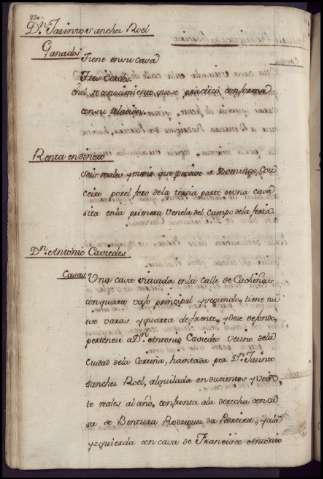 Dn. Jazinto Sanchez Roel
Ganados
Tiene en su casa
Tres Cerdos
en el reconocimiento que se practicó, conforma
con su relacion
Renta en dinero
Seis reales y medio que percive de Domingo
por el foro de la tercia parte de una casa
sita en la primera del campo de la feria
Dn. Antonio Caviedes
Casas
Una casa situada en la calle de
con quarto vajo principal y segundo, tiene nue
ve varas y quarta de frente, y diez de fondo,
pertenece a Dn. Antonio Caviedes Vecino de la
Ciudad de la Coruña, havitada por Dn. Jazinto
Sanchez Roel, alquilada en ducientos y vein
te reales al año, confronta a la derecha con ca
sa de Bentura Rodriguez
yzquierda con casa de Francisco Antonio